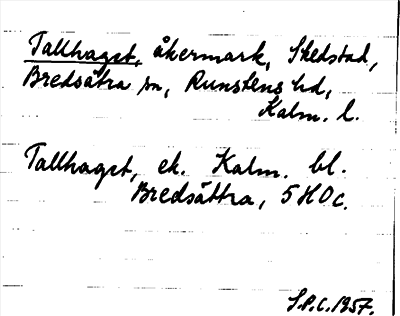 Tallhaget, åkermark, Skedstad,
Bredsätra sn, Runstens hd,
Kalm. l.
Tallhaget, ek. Kalm. bl.
Bredsättra, 5H0c.
S.P.C. 1957.